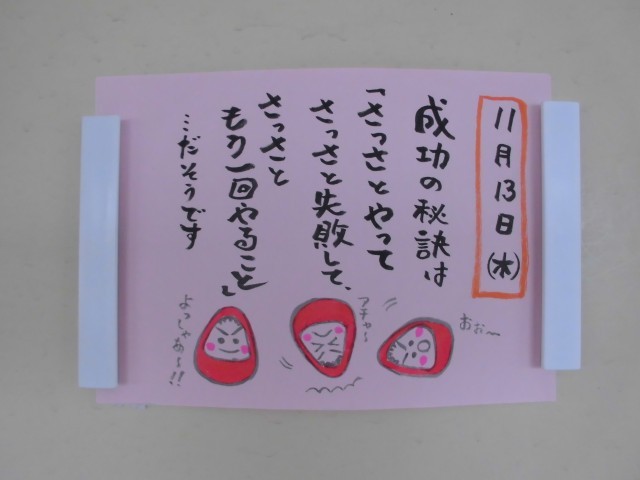 11月13日(木)
成功の秘訣は
「さっさとやって
さっさと失敗して、
さっさと
もう一回やること」
…だそうです
おぉ〜
アチャ〜
よっしゃあ〜!!